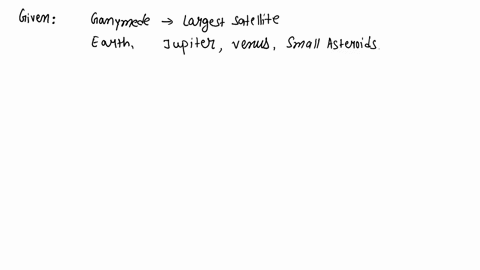 Given: Ganymede → Largest satellite
Earth, Jupiter, Venus, Small Asteroids.